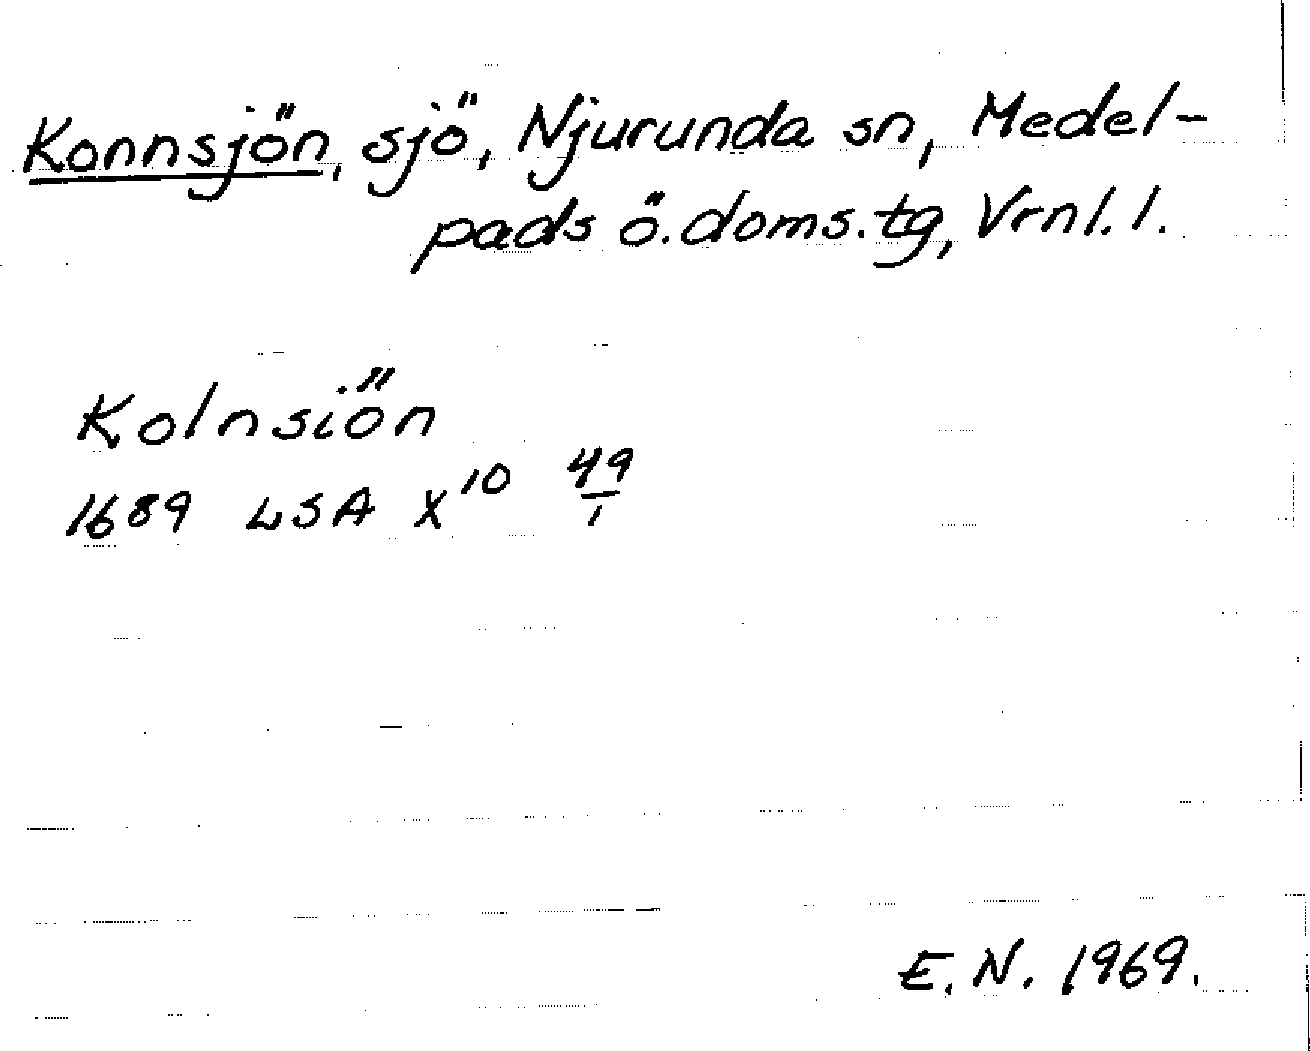 Konnsjön, sjö, Njurunda sn, Medel-
pads ö. doms. tg, Vrnl. l.
Kolnsiön
1689 LSA X¹⁰ 49/1
E. N. 1969.